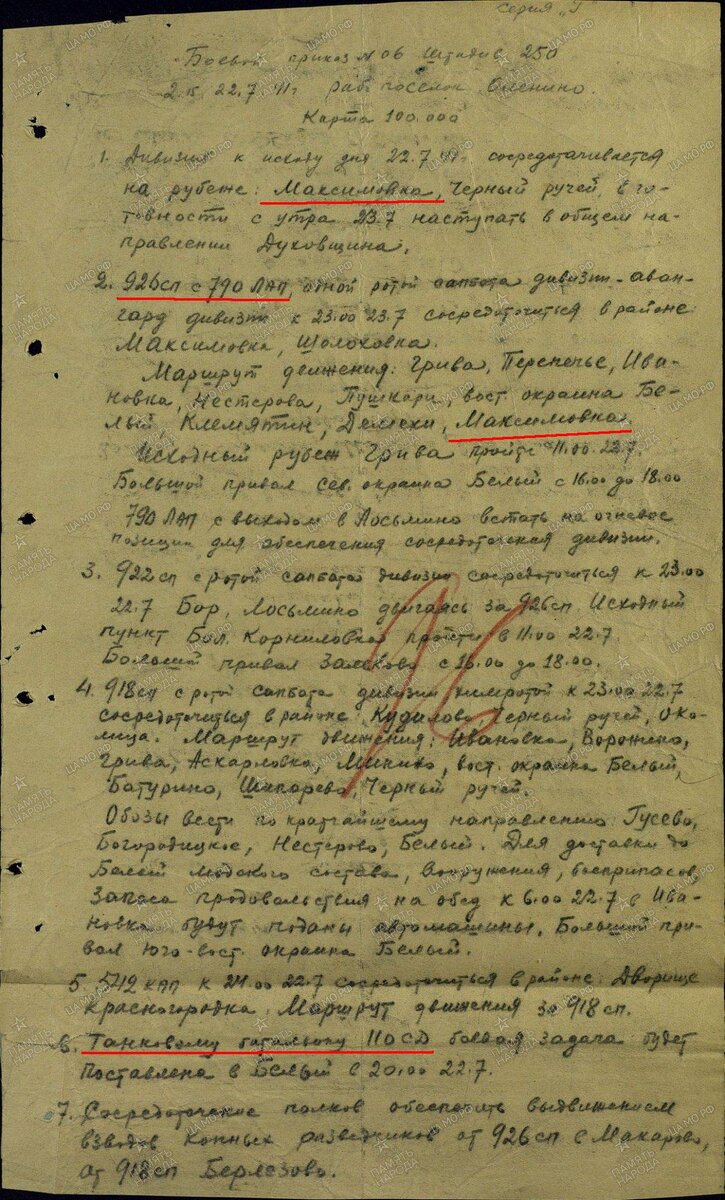 Серия "Г"
Боевой приказ № 06 Штадив 250
2.15 22.7 41г раб. поселок Оленино.
Карта 100.000
1. Дивизия к исходу дня 22.7.41г. сосредотачивается
на рубеже: Максимовка, Черный ручей, в го-
товности с утра 23.7 наступать в общем на-
правлении Духовщина.
2. 926 сп с 790 ЛАП, одной ротой сапбата дивизии - аван-
гард дивизии к 23.00 23.7 сосредоточиться в районе:
Максимовка, Шолоховка.
Маршрут движения: Грива, Перепечье, Ива-
новка, Нестерова, Пушкари, вост. окраина Бе-
лый, Клемятин, Демехи, Максимовка.
Исходный рубеж Грива пройти 11.00 22.7.
Большой привал сев. окраина Белый с 16.00 до 18.00
790 ЛАП с выходом в Лосьмино встать на огневое
позиции для обеспечения сосредоточения дивизии.
3. 922 сп с ротой сапбата дивизии сосредоточиться к 23.00
22.7 Бор, Лосьмино двигаясь за 926 сп. Исходный
пункт Бол. Корниловка пройти в 11.00 22.7.
Большой привал с 16.00 до 18.00.
4. 918 сп с ротой сапбата дивизии химротой к 23.00 22.7
сосредоточиться в районе Кудилово, Черный ручей, Око-
лица. Маршрут движения: Ивановка, Воронино,
Грива, Аскарловка, Минино, вост. окраина Белый,
Батурино, Шипарево, Черный ручей.
Обозы вести по кратчайшему направлению Гусево,
Богородицкое, Нестерово, Белый. Для доставки до
Белый людского состава, вооружения, боеприпасов,
запаса продовольствия на обед к 6.00 22.7 в Ива-
новка будут поданы автомашины. Большой при-
вал юго-вост. окраина Белый.
5. 542 кап к 24.00 22.7 сосредоточиться в районе: Дворище
Красногородка. Маршрут движения за 918 сп.
6. Танковому батальону 110 СД боевая задача будет
поставлена в Белый в 20.00 22.7.
7. Сосредоточение полков обеспечить выдвижением
взводов конных разведчиков от 926 сп в Макарово,
от 918 сп Берлезово.